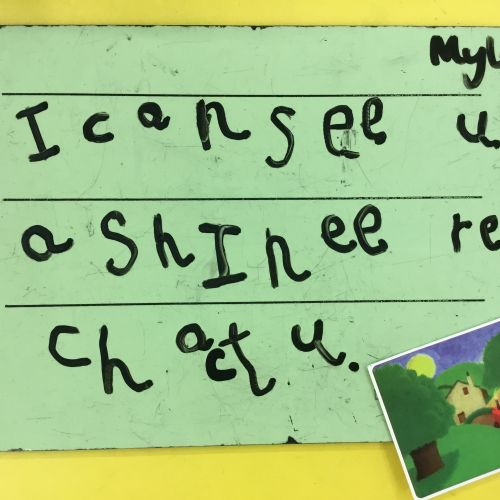 Myl
I can see u
a ShInee re
chactu.